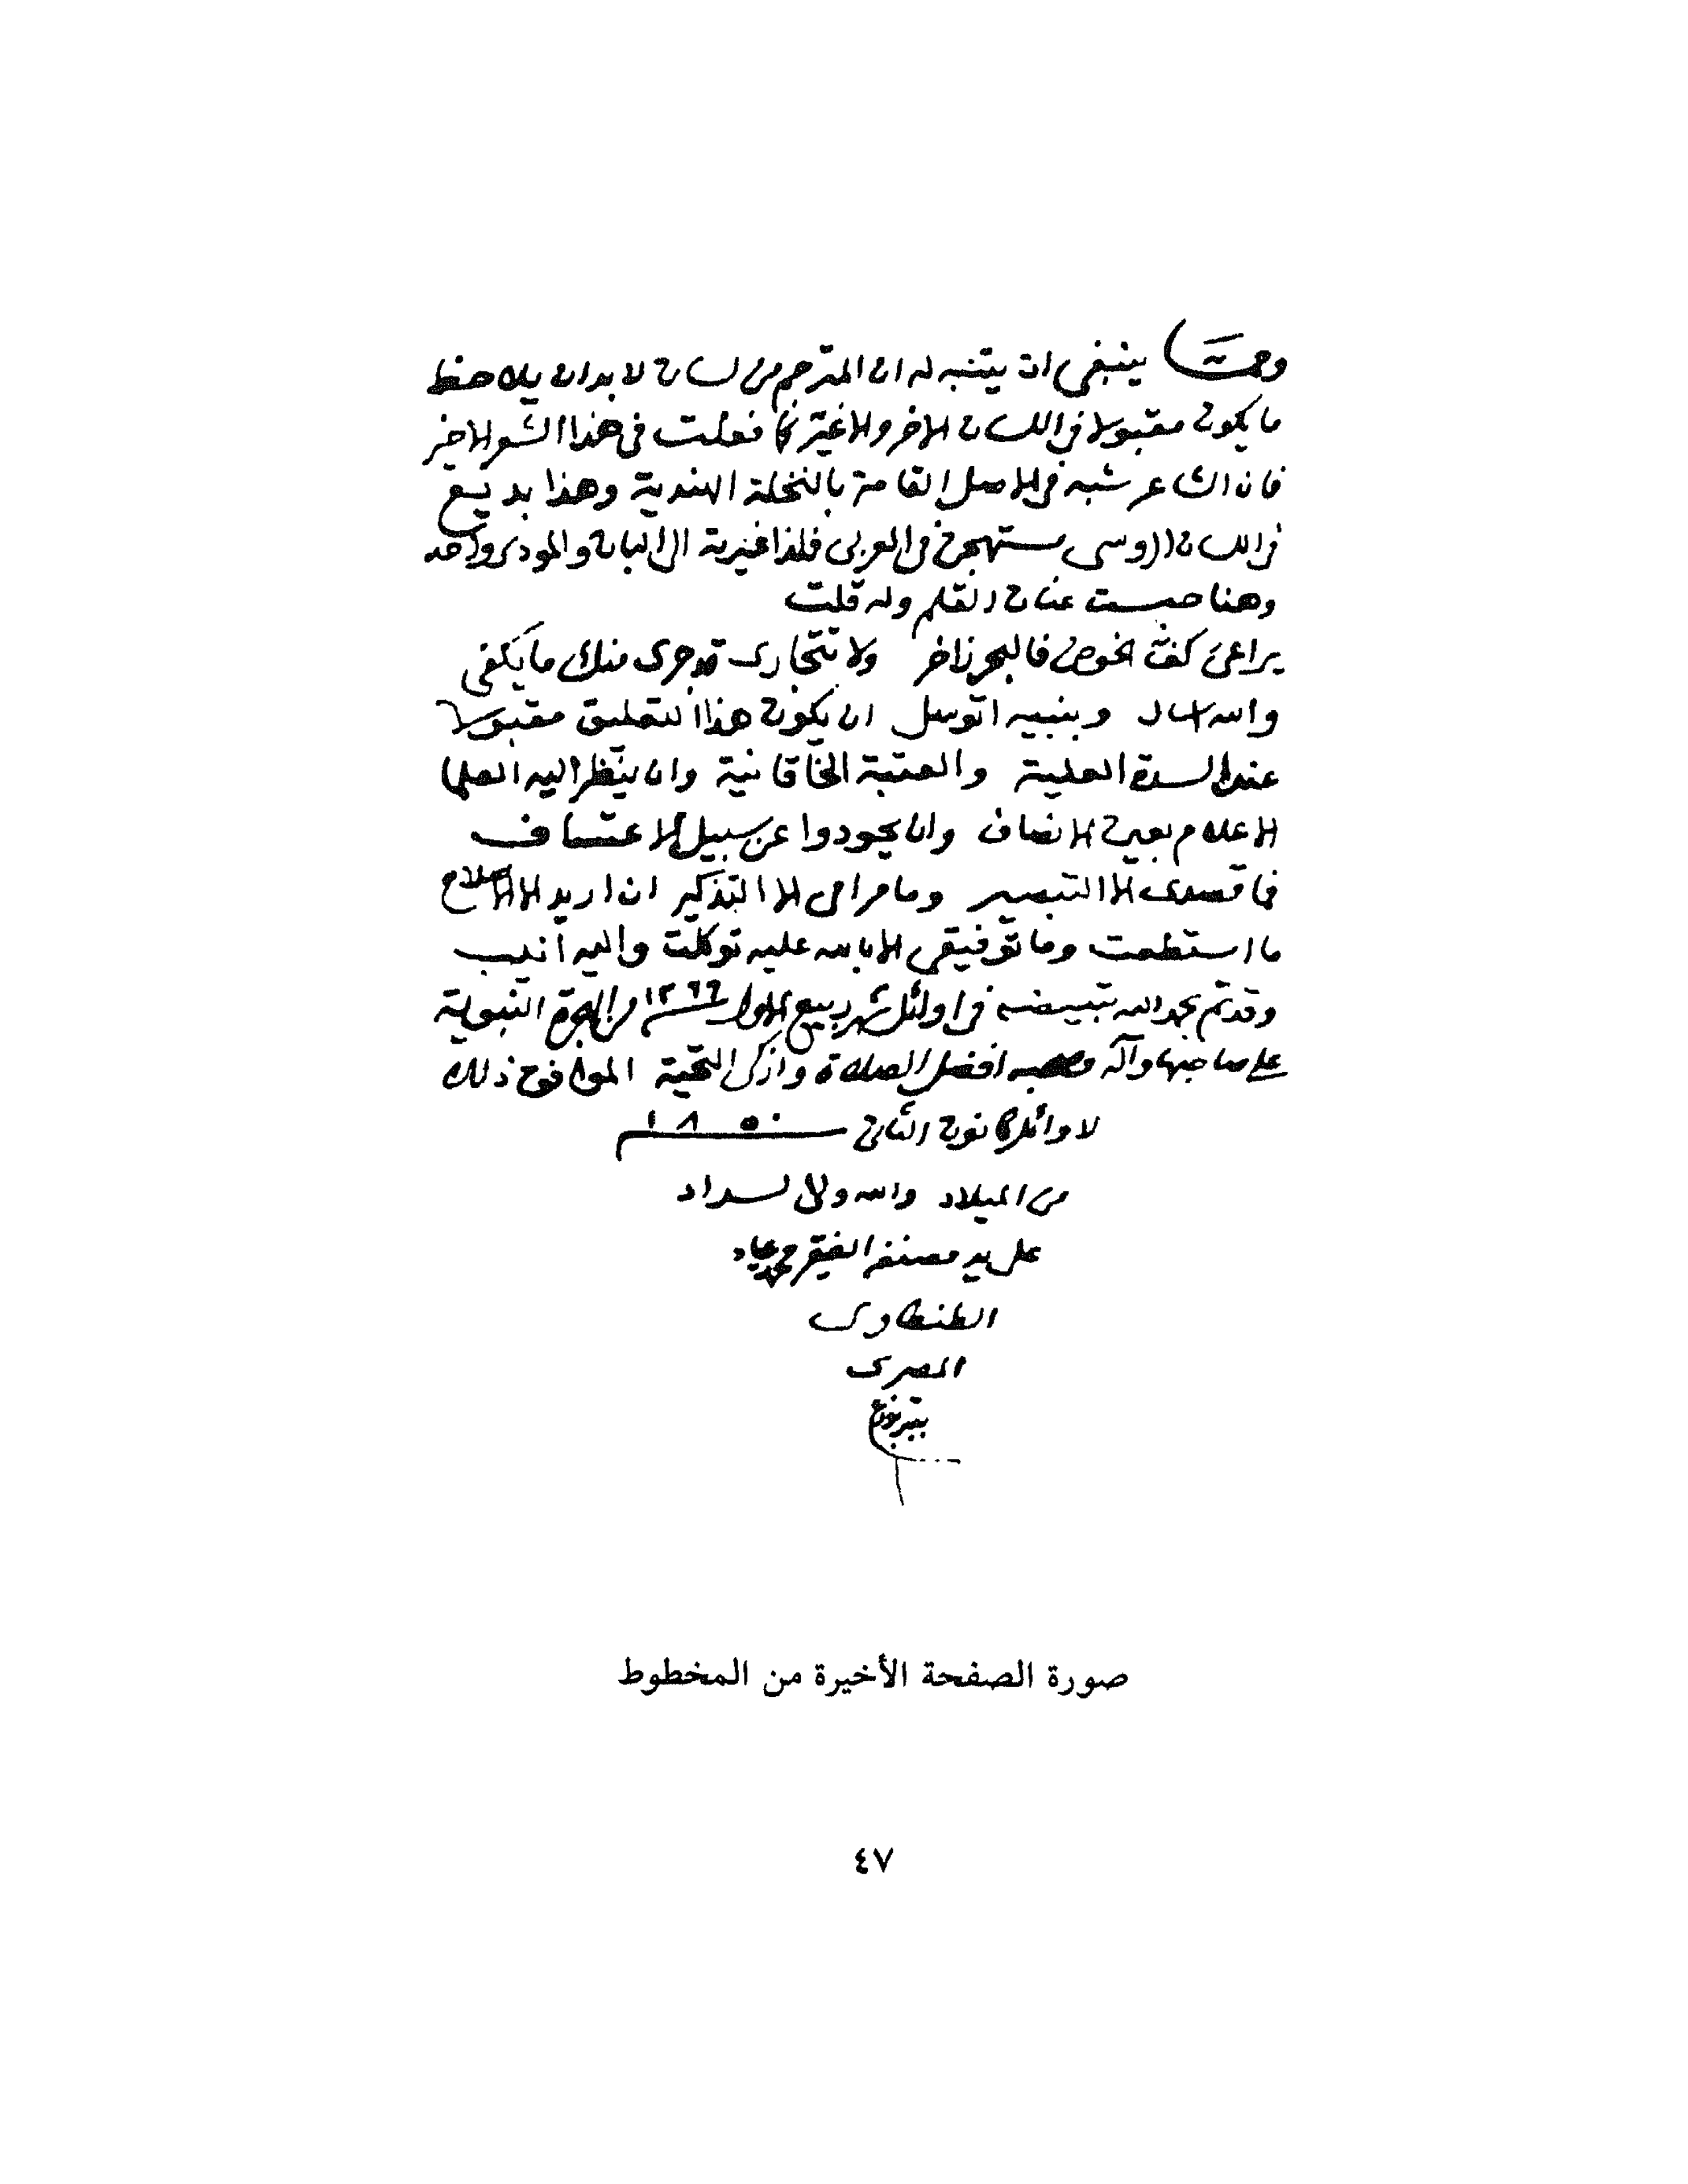 ومما ينبغى ان يتنبه له ان المترجم من لسان لا بد ان يلاحظ
ما يكون مقبولا فى اللسان الاخر والا غير كما فعلت فى هذا الشعر الاخير
فان الشاعر شبه فى الاصل القامة بالنخلة الهندية وهذا بديع
فى اللسان الروسى مستهجن فى العربى فلذا غيرته الى البان والمودى واحد
وهنا حبست عنان القلم وله قلت
يراعى كفت الخوض فالبحر زاخر ولا تتجارى قد جرى منك ما يكفى
والله اسال وبنبيه اتوسل ان يكون هذا التعليق مقبولا
عند السدة العلية والعتبة الخاقانية وان ينظر اليه العلما
الاعلام بعين الانصاف وان يحودوا عن سبيل الاعتساف
فما قصدى الا التبصير وما مرامى الا التذكير ان اريد الا الاصلاح
ما استطعت وما توفيقى الا بالله عليه توكلت واليه أنيب
وقد تم بحمد الله تبييضه فى اوائل شهر ربيع الاول سنة ١٢٦٦ من الهجرة النبوية
على صاحبها وآله وصحبه افضل الصلاة وازكى التحية الموافق ذلك
لاوائل كانون الثانى سنة ١٨٥٠
من الميلاد والله ولى السداد
على يد مصنفه الفقير محمد عياد
الطنطاوى
المصرى
صورة الصفحة الأخيرة من المخطوط
٤٧